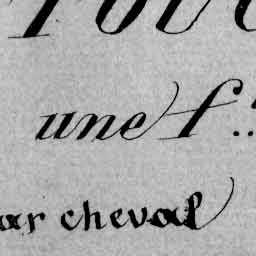 une f..
ar cheval